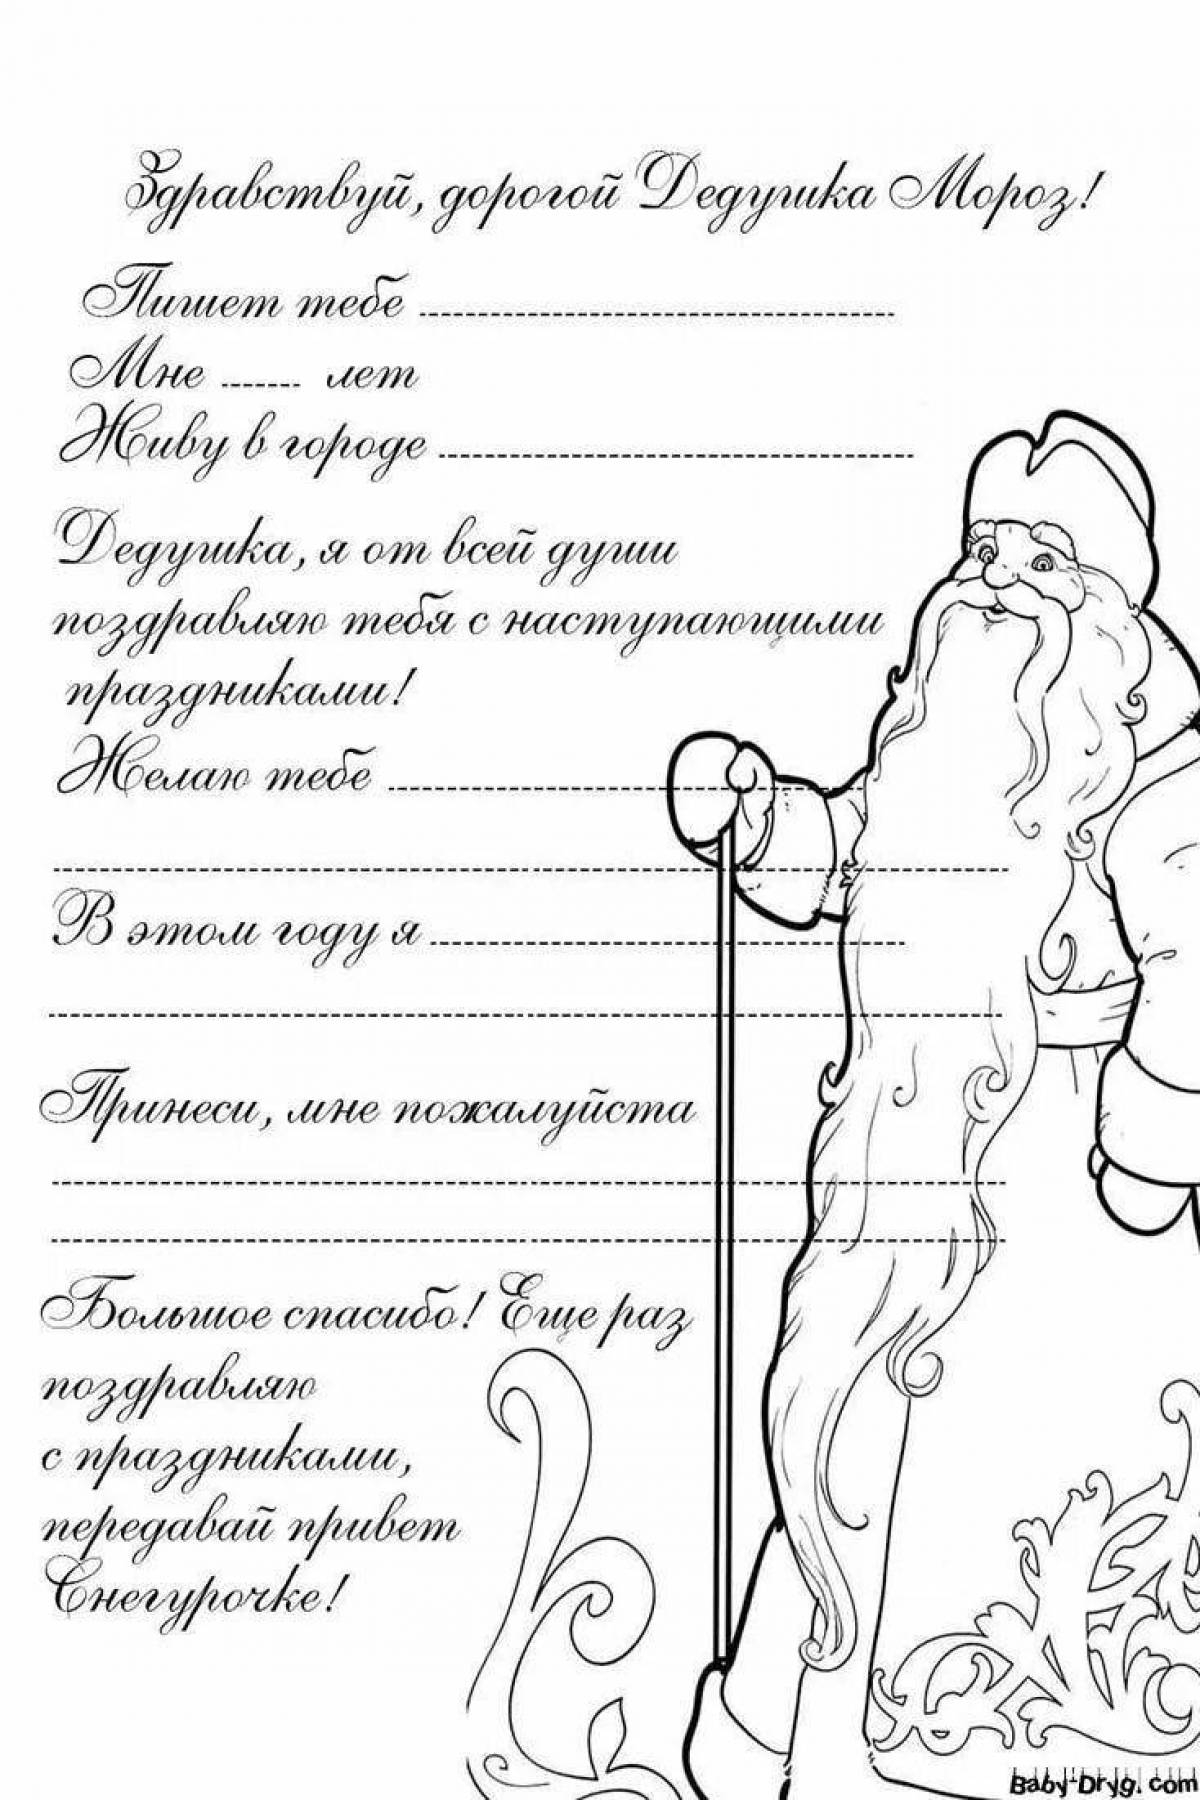 Здравствуй, дорогой Дедушка Мороз!
Пишет тебе
Мне лет
Живу в городе
Дедушка, я от всей души
поздравляю тебя с наступающими
праздниками!
Желаю тебе
В этом году я
Принеси, мне пожалуйста
Большое спасибо! Еще раз
поздравляю
с праздниками,
передавай привет
Снегурочке!
Baby-Dryg.com